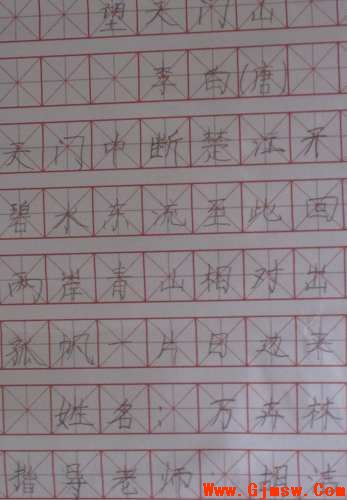 望天门山
李白(唐)
天门中断楚江开
碧水东流至此回
两岸青山相对出
孤帆一片日边来
姓名：万卉林
指导老师
Www.Gjmsw.Com